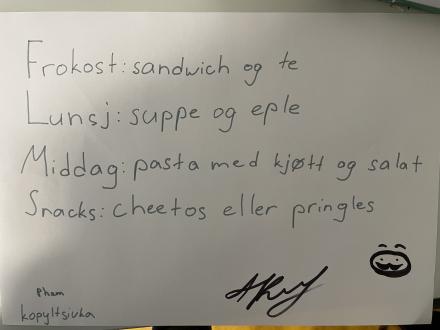 Frokost: sandwich og te
Lunsj: suppe og eple
Middag: pasta med kjøtt og salat
Snacks: cheetos eller pringles
Pham
kopyltsivka